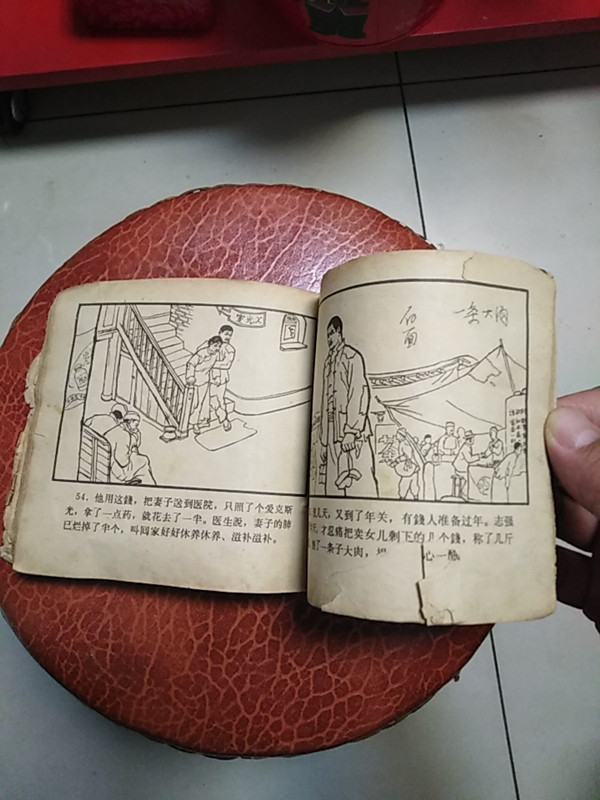 室光义
54. 他用这錢，把妻子送到医院，只照了个爱克斯
光，拿了一点药，就花去了一半。医生说，妻子的肺
已烂掉了半个，叫回家好好休养休养、滋补滋补。
白
面
一条大肉
几天，又到了年关，有錢人准备过年。志强
天，才忍痛把卖女儿剩下的几个錢，称了几斤
了一条子大肉，
心一酸